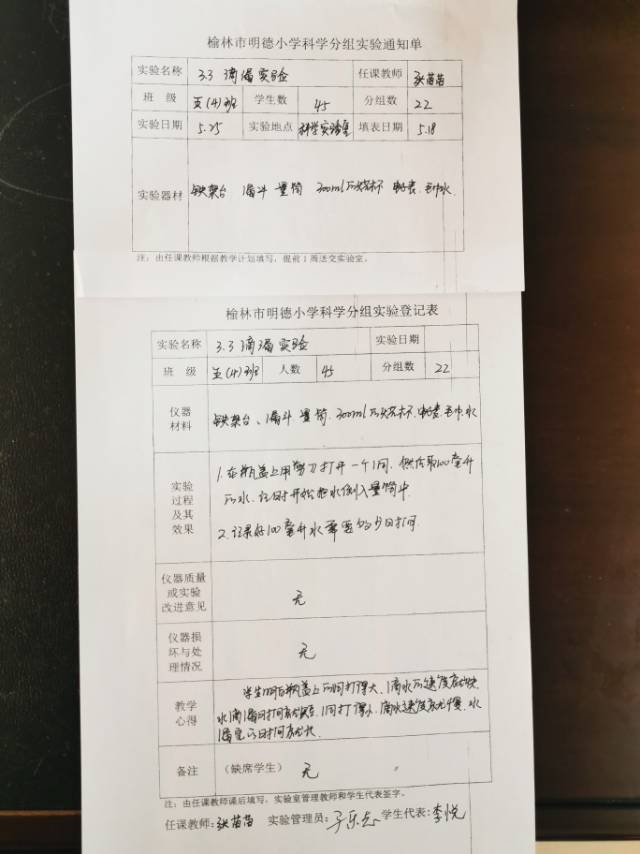 榆林市明德小学科学分组实验通知单
实验名称 3.3 滴漏实验 任课教师 张苗苗
班 级 五(4)班 学生数 45 分组数 22
实验日期 5.25 实验地点 科学实验室 填表日期 5.18
实验器材 铁架台 漏斗 量筒 300ml的烧杯 钟表 毛巾 水
注：由任课教师根据教学计划填写，提前1周送交实验室。
榆林市明德小学科学分组实验登记表
实验名称 3.3 滴漏实验 实验日期
班 级 五(4)班 人数 45 分组数 22
仪器材料 铁架台、漏斗 量筒 300ml的烧杯 钟表 毛巾 水
实验过程及其效果
1.在瓶盖上用剪刀打开一个洞，然后取100毫升
的水，计时开始把水倒入量筒中
2.记录好100毫升水需要的多少时间
仪器质量或实验改进意见 无
仪器损坏与处理情况 无
教学心得
学生 瓶盖上的洞打得大，滴水的速度就越快
水滴漏时间就越短，洞打得小，滴水速度就越慢，水
漏完的时间就越长
备注 (缺席学生) 无
注：由任课教师课后填写，实验室管理教师和学生代表签字。
任课教师：张苗苗 实验管理员： 学生代表：李悦